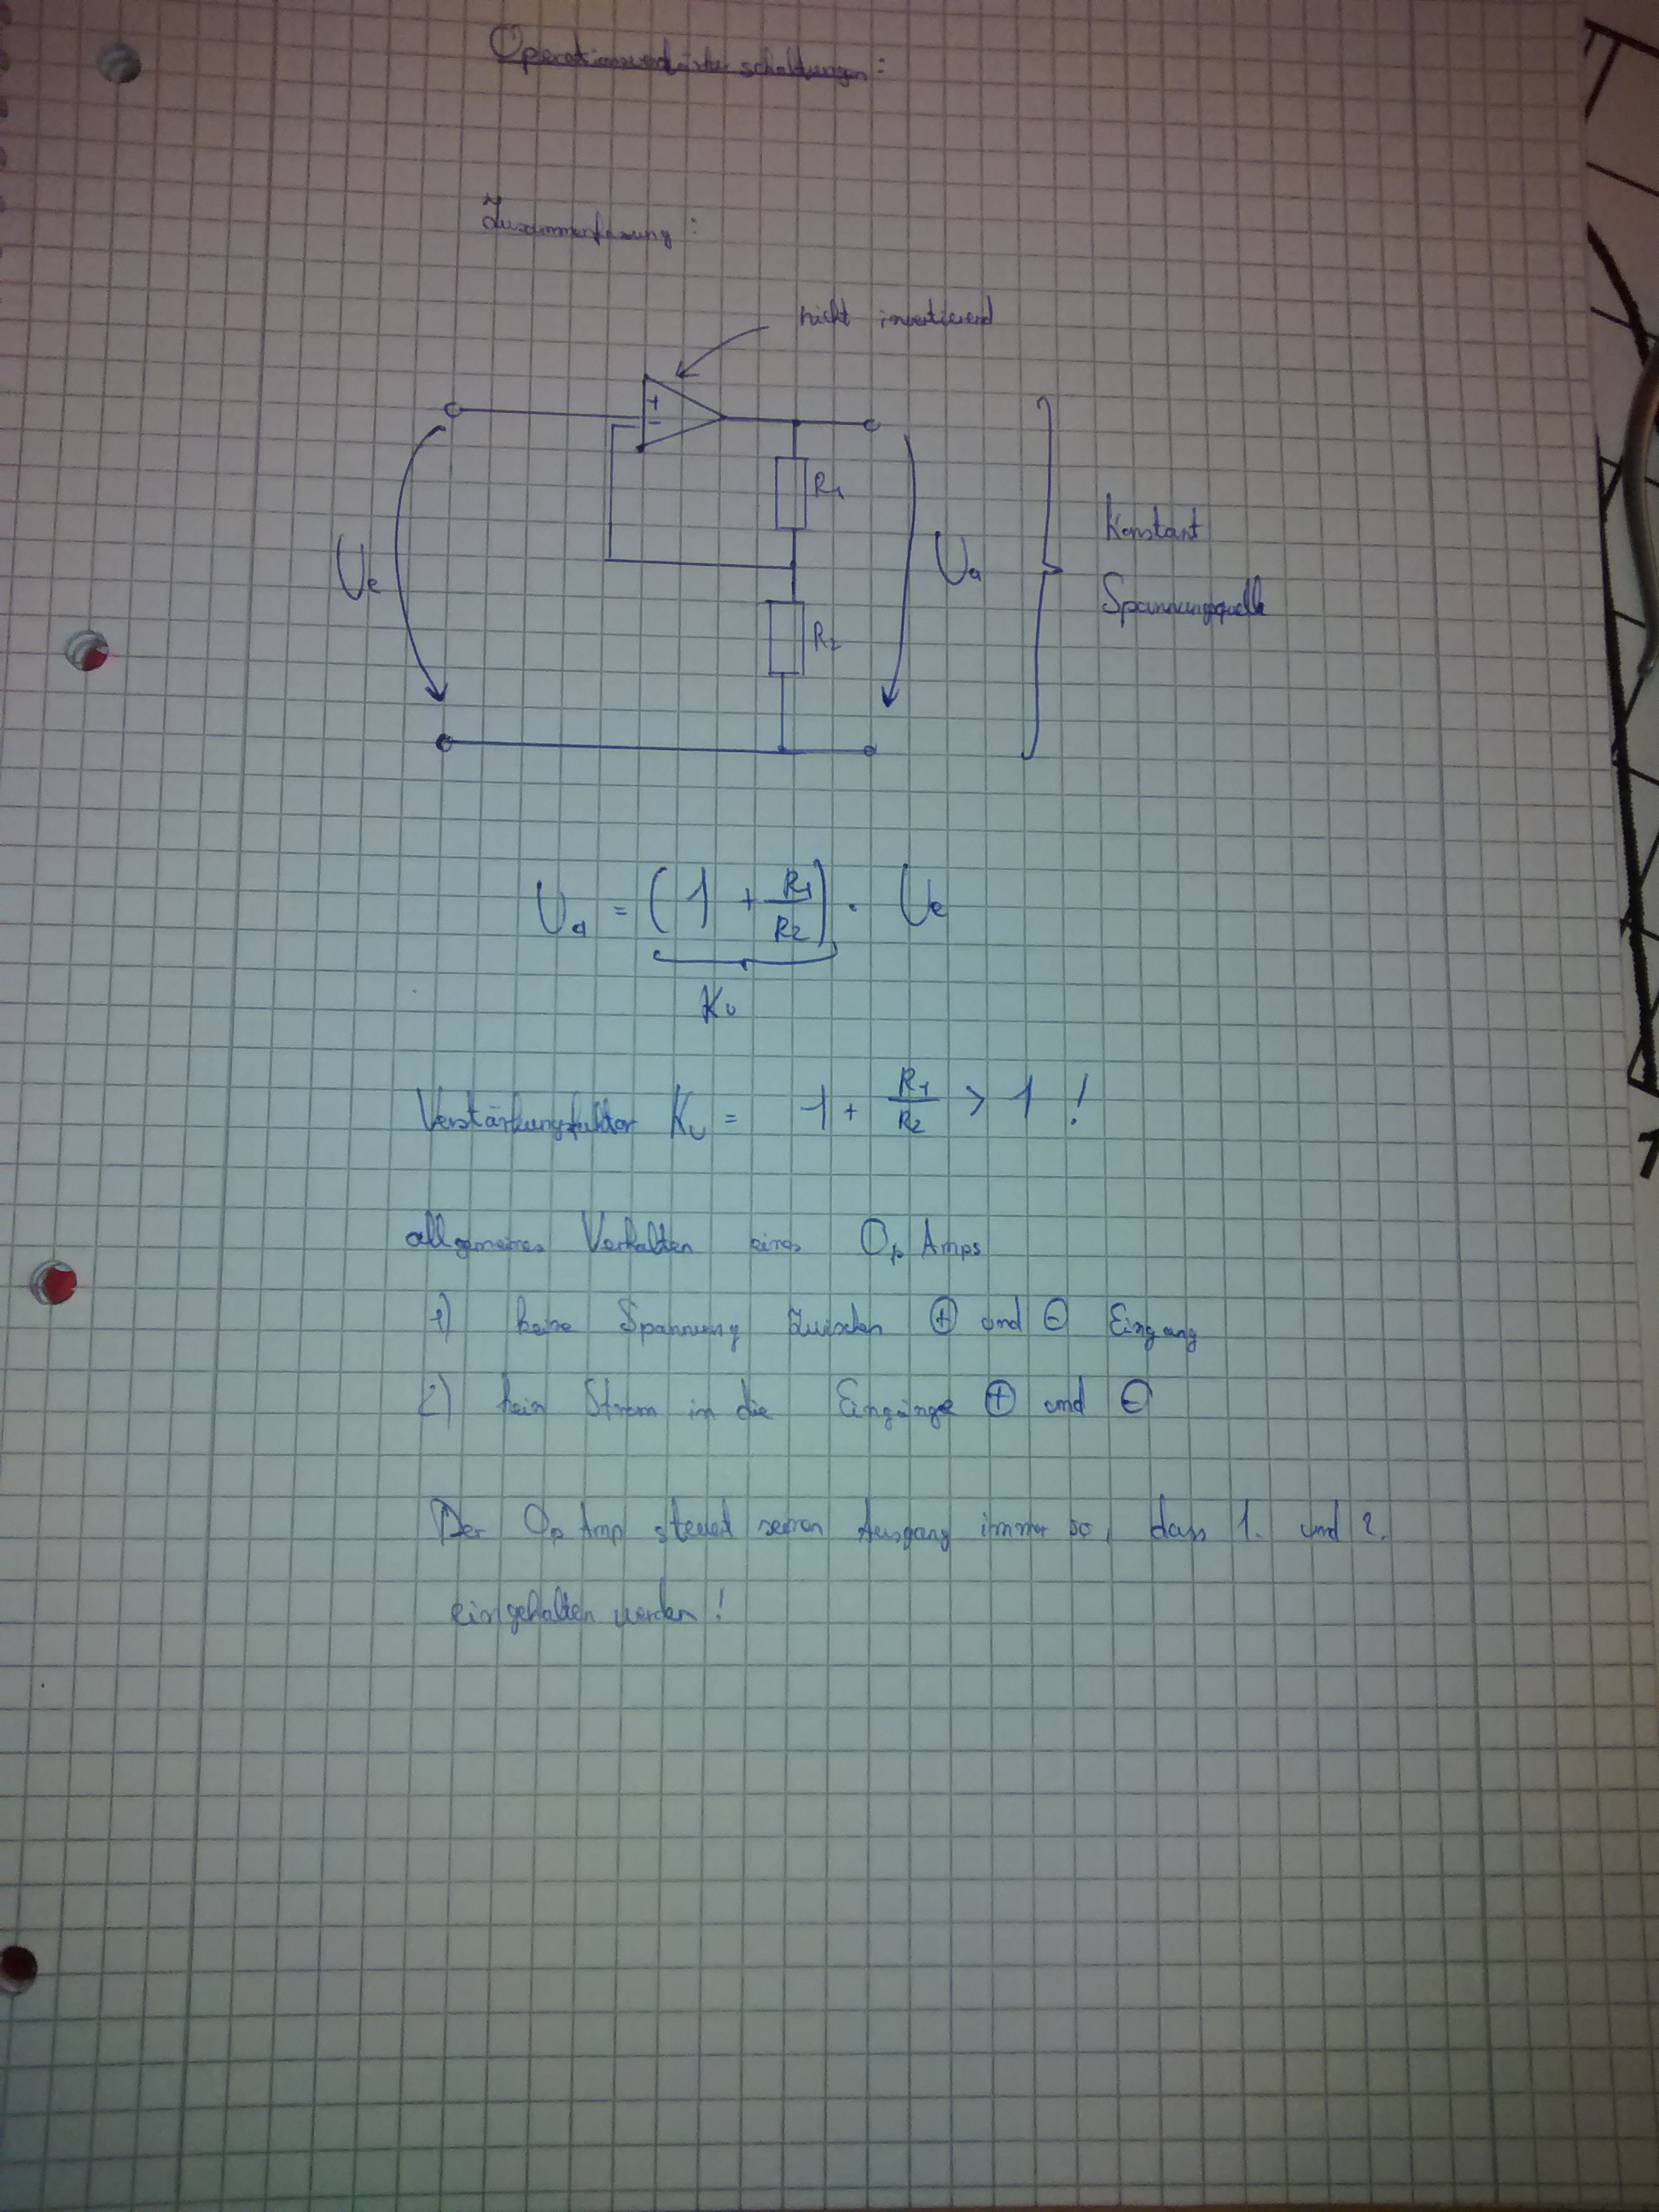 Operationsverstärkerschaltungen:
Zusammenfassung:
nicht invertierend
+
-
R1
Ue
Ua
Konstant
Spannungsquelle
R2
Ua = (1 + R1/R2) · Ue
Ku
Verstärkungsfaktor Ku = 1 + R1/R2 > 1 !
allgemeines Verhalten eines Op Amps
1) keine Spannung zwischen ⊕ und ⊖ Eingang
2) kein Strom in die Eingänge ⊕ und ⊖
Der Op Amp steuert seinen Ausgang immer so, dass 1. und 2.
eingehalten werden!